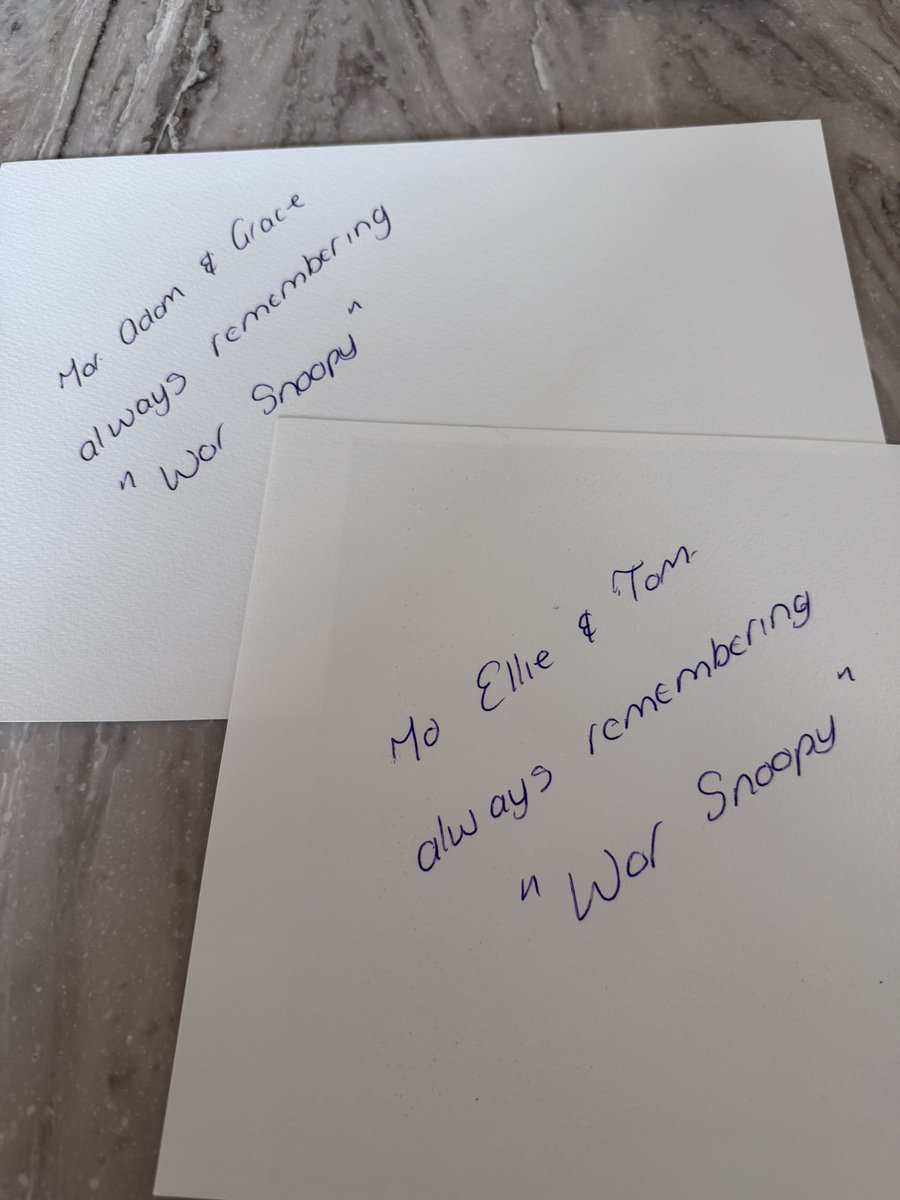 Mar Adam & Grace
always remembering
"Wor Snoopy"
Mo Ellie & Tom.
always remembering
"Wor Snoopy"